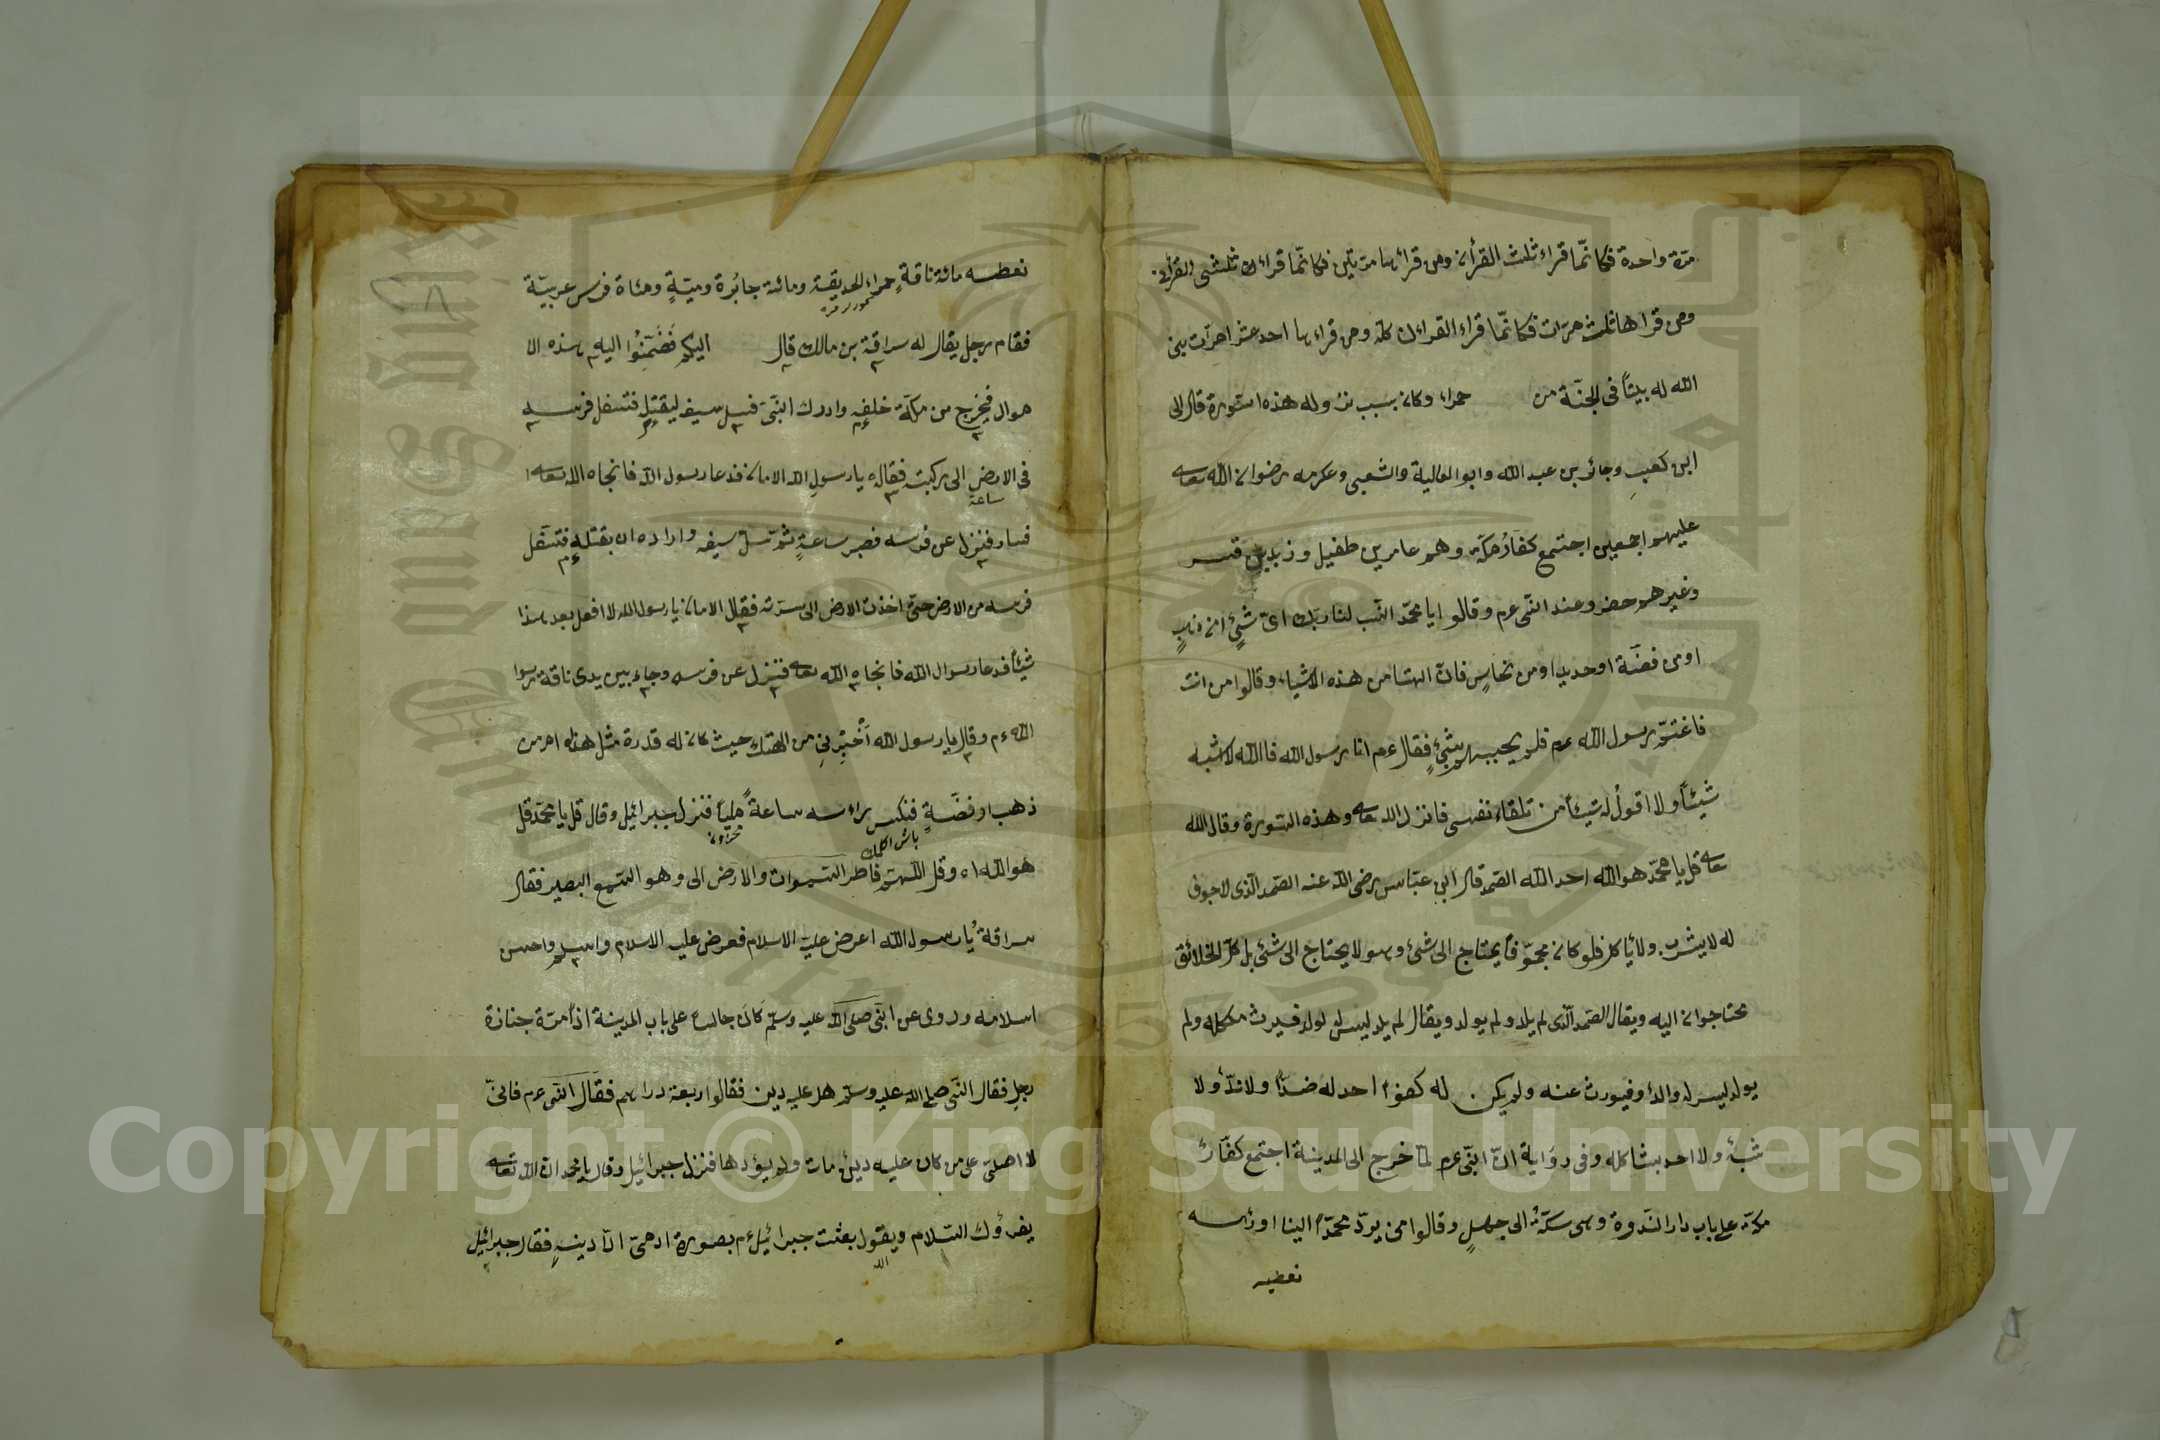 مرّة واحدة فكانّما قراء ثلث القرأن ومن قرائها مرتين فكانّما قراء ثلثى القرأن
ومن قراها ثلث مرّات فكانّما قراء القران كلّه ومن قراءها احد عشر مرّات بنى
الله له بيتًا فى الجنّة من حمراء وكان سبب نزوله هذه السّورة قال ابى
ابن كعب وجابر بن عبد الله وابو العالية والشعبى وعكرمه رضوان الله تعالى
عليهم اجمعين اجتمع كفّار مكّة وهم عامر بن طفيل وزيد بن قيس
وغيرهم حضروعند النّبى عم وقالوا يا محمّد انسب لنا ربّك اىّ شيئ امن ذهب
او من فضّة او حديد او من نحاس فانّ الهتنا من هذه الاشياء وقالوا من انت
فاغتمّ رسول الله عم فلم يجيبهم بشيئ فقال عم انا رسول الله فالله لا شبه
شيئاً ولا اقول له شيئا من تلقاء نفسى فانزل الله تعالى هذه السّورة وقال الله
تعالى قل يا محمّد هو الله احد الله الصّمد قال ابن عبّاس رضى الله عنه الصّمد الّذى لا جوف
له لا يشرب ولا يأكل فلو كان مجوّفا يحتاج الى شئ وهو لا يحتاج الى شئ بل كلّ الخلائق
محتاجوان اليه ويقال الصّمد الّذى لم يلد ولم يولد ويقال لم يلد ليس له ولد فيرث ملكه ولم
يولد ليس له والد فيورث عنه ولم يكن له كفوًا احد له ضدّا ولا ندّ ولا
شبه ولا احد يشاكله وفى رواية انّ النّبى عم لمّا خرج الى المدينة اجتمع كفّار
مكّة على باب دار النّدوة وقالوا من يردّ محمّدًا الينا او رأسه
نعطيه
نعطيه مائة ناقة حمراء الحديقة ومائة جائرة ومائة فرس عربيّة
فقام رجل يقال له سراقة بن مالك قال اليكم فضمّنوا اليه هذه الا
موال فخرج من مكّة خلفه وادرك النّبى فسل سيفه ليقتله فتسفل فرسه
فى الارض الى ركبته فقال يا رسول الله الامان فدعا رسول الله فانجاه الله تعالى
ساعة
فسار فنزل عن فرسه فصبر ساعة ثمّ سلّ سيفه واراده ان يقتله فتسفل
فرسه من الارض حتّى اخذت الارض الى سرّته فقال الامان يا رسول الله لا افعل بعد هذا
شيئاً فدعا رسول الله فانجاه الله تعالى فنزل عن فرسه وجاء بين يدى ناقة رسول
الله عم وقال يا رسول الله اخبرنى من الهتك حيث كان له قدرة مثل هذه امن من
ذهب او فضّة فنكس رأسه ساعة مليا فنزل جبرائيل وقال قل يا محمّد قل
هو الله اه وقل اللّهم فاطر السّموات والارض الى وهو السّميع البصير فقال
سراقة يا رسول الله اعرض علىّ الاسلام فعرض عليه الاسلام واسلم واحسن
اسلامه وروى عن النّبى صلّى الله عليه وسلّم كان جالسا على باب المدينة اذا مرّة جنازة
رجل فقال النّبى صلّى الله عليه وسلّم هل عليه دين فقالوا اربعة دراهم فقال النّبى عم فانّى
لا اصلّى على من كان عليه دين مات ولم يؤدها فنزل جبرائيل وقال يا محمد انّ الله تعالى
يقرؤك السّلام ويقول بعثت جبرائيل عم بصورة ادمىّ ادّا دينه فقال جبرائيل
Copyright © King Saud University